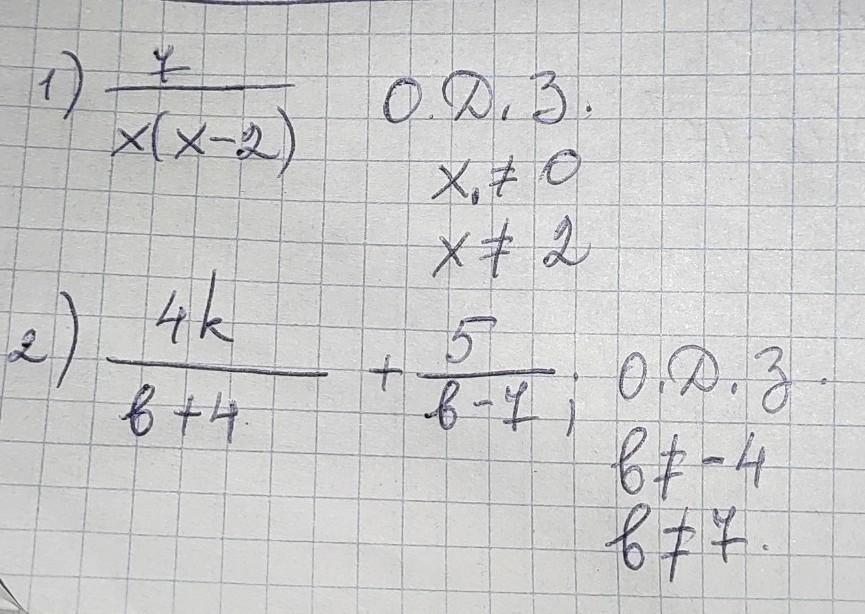 1) 7/(x(x-2)) О.Д.З.
x ≠ 0
x ≠ 2
2) 4k/(в+4) + 5/(в-7); О.Д.З.
в ≠ -4
в ≠ 7.